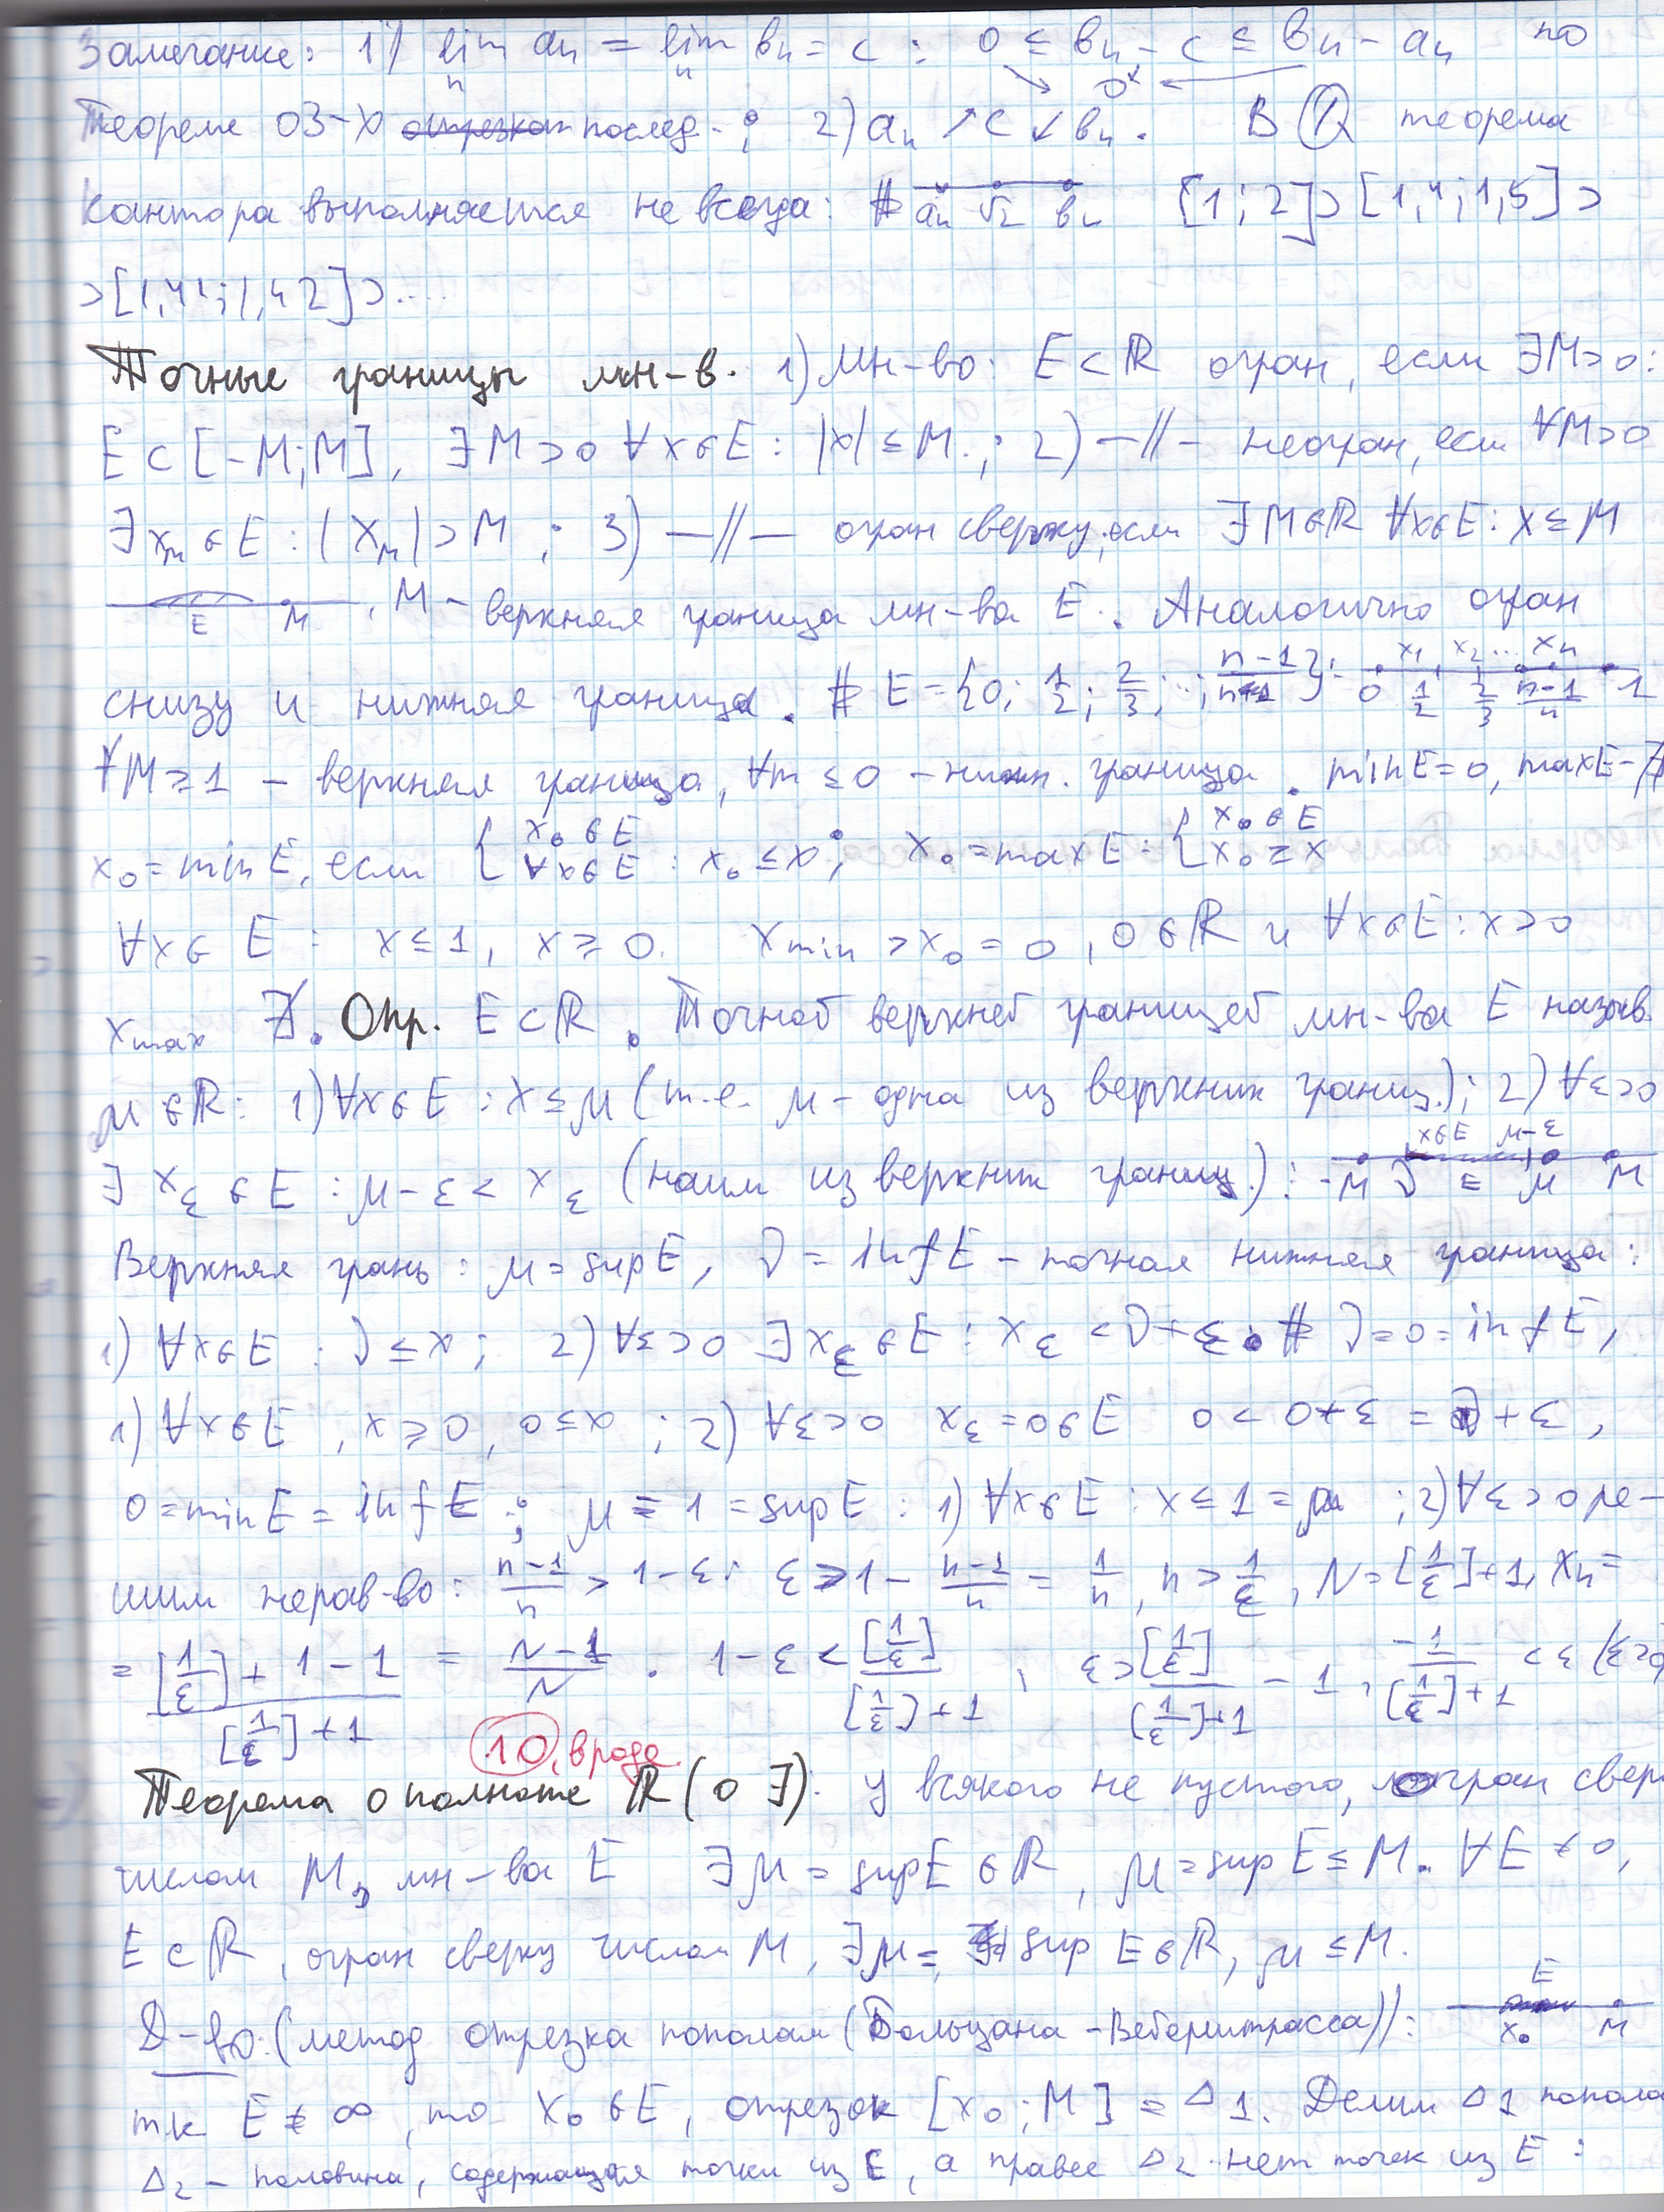 Замечание: 1) lim aₙ = lim bₙ = c : 0 ≤ bₙ - c ≤ bₙ - aₙ по
n n ↘ 0 ↙
Теореме 03-х послед. ; 2) aₙ ↗ c ↙ bₙ. В Q теорема
Кантора выполняется не всегда: # aₙ √2 bₙ [1; 2] ⊃ [1,4; 1,5] ⊃
⊃ [1,41; 1,42] ⊃ ....
Точные границы мн-в. 1) Мн-во: E ⊂ ℝ огран, если ∃M>0:
E ⊂ [-M; M], ∃M>0 ∀x∈E : |x| ≤ M. ; 2) —//— неогран, если ∀M>0
∃xₘ∈E : |xₘ| > M ; 3) —//— огран сверху, если ∃M∈ℝ ∀x∈E: x ≤ M
E M , M - верхняя граница мн-ва E. Аналогично огран
снизу и нижняя граница. # E = {0; 1/2; 2/3; ...; n-1/n+1}: x₁ x₂ ... xₙ 0 1/2 2/3 n-1/n 1
∀M ≥ 1 - верхняя граница, ∀m ≤ 0 - нижн. граница. min E = 0, max E - ∄
x₀ = min E, если { x₀∈E ∀x∈E : x₀ ≤ x ; x₀ = max E : { x₀∈E x₀ ≥ x
∀x∈E : x ≤ 1, x ≥ 0. xmin > x₀ = 0, 0∈ℝ и ∀x∈E : x > 0
xmax ∄. Опр. E ⊂ ℝ. Точной верхней границей мн-ва E назыв.
μ∈ℝ: 1) ∀x∈E : x ≤ μ (т.е. μ - одна из верхних границ.); 2) ∀ε>0
∃xε∈E : μ-ε < xε (наим из верхних границ.) : x∈E μ-ε -M ν E μ M
Верхняя грань: μ = sup E, ν = inf E - точная нижняя граница:
1) ∀x∈E : ν ≤ x ; 2) ∀ε>0 ∃xε∈E : xε < ν+ε. # ν=0=inf E,
1) ∀x∈E, x ≥ 0, 0 ≤ x ; 2) ∀ε>0 xε=0∈E 0 < 0+ε = ν+ε,
0 = min E = inf E ; μ = 1 = sup E : 1) ∀x∈E : x ≤ 1 = μ ; 2) ∀ε>0 ре-
шим нерав-во: n-1/n > 1-ε ; ε > 1 - n-1/n = 1/n, n > 1/ε, N=[1/ε]+1, xₙ=
= [1/ε]+1-1/[1/ε]+1 = N-1/N . 1-ε < [1/ε]/[1/ε]+1
10, вроде
Теорема о полноте ℝ (о ∃): у всякого не пустого, огран свер
числом M, мн-ва E ∃μ = sup E ∈ ℝ, μ = sup E ≤ M. ∀E ≠ 0,
E ⊂ ℝ, огран сверху числом M, ∃μ = sup E∈ℝ, μ ≤ M.
Д-во: (метод отрезка пополам (Больцана - Веберштрасса)): E x₀ M
тк E ≠ ∞, то x₀∈E, отрезок [x₀; M] = Δ1. Делим Δ1 попола
Δ₂ - половина, содержащая точки из E, а правее Δ₂ нет точек из E :